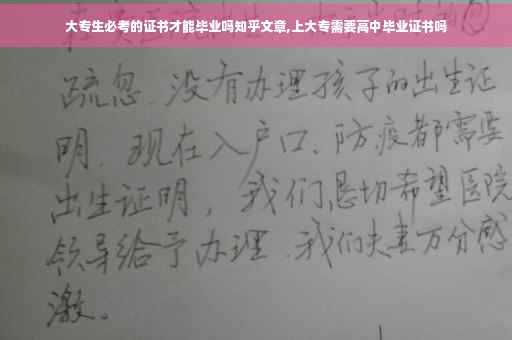 大专生必考的证书才能毕业吗知乎文章,上大专需要高中毕业证书吗
疏忽、没有办理孩子的出生证
明、现在入户口、防疫都需要
出生证明，我们恳切希望医院
领导给予办理、我们夫妻万分感
激。